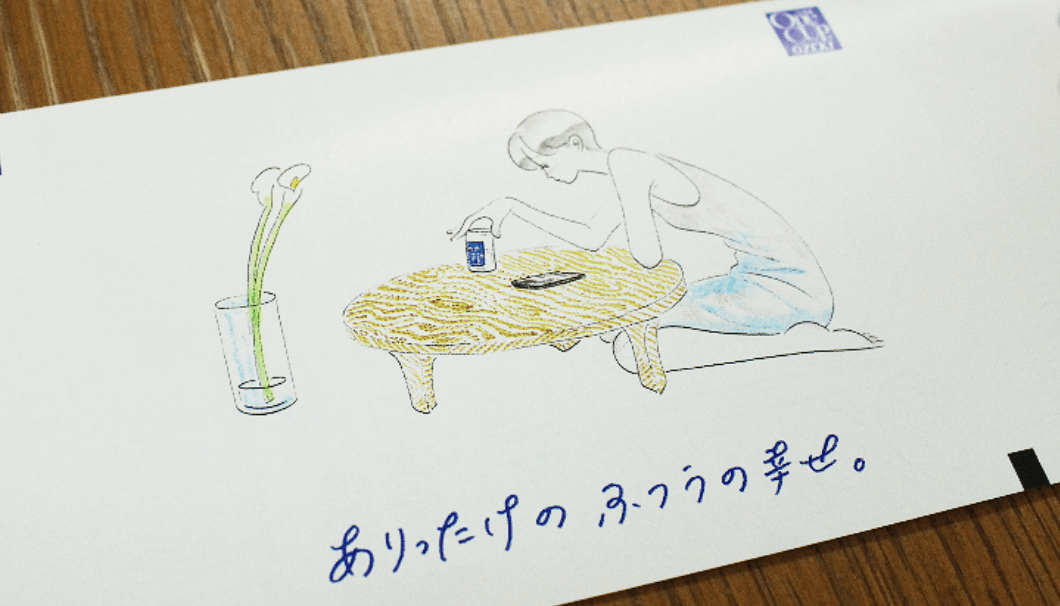 ONE
CUP
OZEKI
ありったけの ふつうの幸せ。